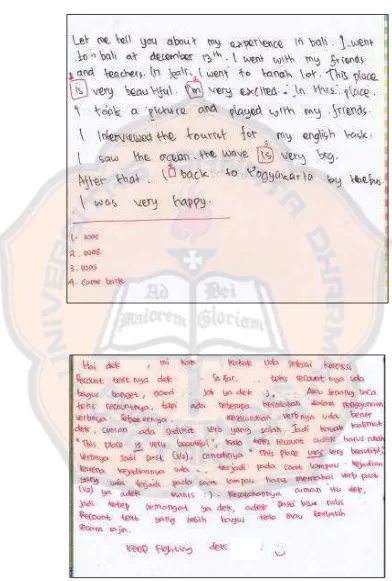 Let me tell you about my experience in bali. I went
to bali at december 13th. I went with my friends
and teachers. In bali, I went to tanah lot. This place
1 is very beautiful. I'm 2 very excited. In this place.
I took a picture and played with my friends
I interviewed the tourist for my english task.
I saw the ocean. the wave is 3 very big.
After that. I 4 back to Yogyakarta by the bus
I was very happy.
1. was
2. was
3. was
4. came back
Ad Dei
Maiorem Gloriam
Hai dek , ini kak kakak uda selesai koreksi
recount text nya dek . So far, teks recount nya uda
bagus banget, good job ya dek :). Aku senang baca
teks recountnya, tapi ada beberapa kesalahan dalam penggunaan
verbnya. Sebenernya, keseluruhan verbnya uda bener
dek, cuman ada sedikit verb yang salah. Jadi kalimat
"This place is very beautiful". Kalo teks recount adek harus rubah
verbnya jadi past (V2), contohnya "This place was very beautiful"
karena kejadiannya uda terjadi pada saat lampau. Kejadian
yang uda terjadi pada saat lampau harus memakai verb past
(V2) ya adek manis :). Kesalahannya cuman itu dek,
jadi tetep semangat ya dek, adek pasti bisa nulis
Recount text yang lebih bagus kalo mau berlatih
secara rajin.
Keep Fighting dek